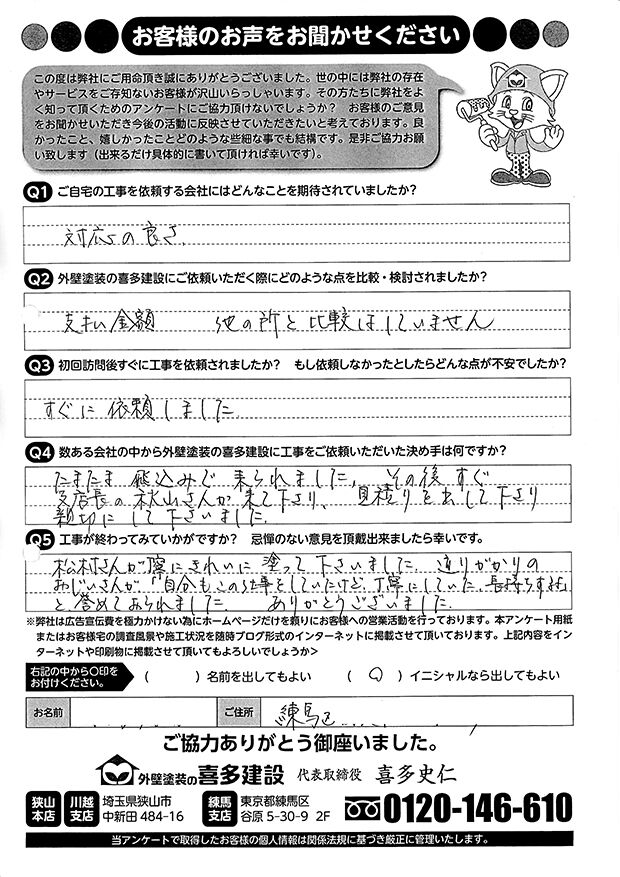 お客様のお声をお聞かせください
この度は弊社にご用命頂き誠にありがとうございました。世の中には弊社の存在
やサービスをご存知ないお客様が沢山いらっしゃいます。その方たちに弊社をよ
く知って頂くためのアンケートにご協力頂けないでしょうか？　お客様のご意見
をお聞かせいただき今後の活動に反映させていただきたいと考えております。良
かったこと、嬉しかったことどのような些細な事でも結構です。是非ご協力お願
い致します（出来るだけ具体的に書いて頂ければ幸いです）。
Q1 ご自宅の工事を依頼する会社にはどんなことを期待されていましたか？
対応の良さ
Q2 外壁塗装の喜多建設にご依頼いただく際にどのような点を比較・検討されましたか？
支払い金額　他の所と比較はしていません
Q3 初回訪問後すぐに工事を依頼されましたか？　もし依頼しなかったとしたらどんな点が不安でしたか？
すぐに依頼しました
Q4 数ある会社の中から外壁塗装の喜多建設に工事をご依頼いただいた決め手は何ですか？
たまたま飛込みで来られました、その後すぐ
支店長の秋山さんが来て下さり、見積りを出して下さり
親切にして下さいました。
Q5 工事が終わってみていかがですか？　忌憚のない意見を頂戴出来ましたら幸いです。
松村さんが丁寧にきれいに塗って下さいました。通りがかりの
おじいさんが、「自分もこの仕事をしていたけど、丁寧にしていた、長持ちするよ」
と誉めておられました。ありがとうございました。
※弊社は広告宣伝費を極力かけない為にホームページだけを頼りにお客様への営業活動を行っております。本アンケート用紙
またはお客様宅の調査風景や施工状況を随時ブログ形式のインターネットに掲載させて頂いております。上記内容をイン
ターネットや印刷物に掲載させて頂いてもよろしいでしょうか＞
右記の中から〇印を
お付けください。
（　　）名前を出してもよい　（ 〇 ）イニシャルなら出してもよい
お名前　ご住所　練馬区
ご協力ありがとう御座いました。
外壁塗装の喜多建設　代表取締役　喜多史仁
狭山本店　川越支店　埼玉県狭山市中新田 484-16
練馬支店　東京都練馬区谷原 5-30-9 2F
0120-146-610
当アンケートで取得したお客様の個人情報は関係法規に基づき厳正に管理いたします。